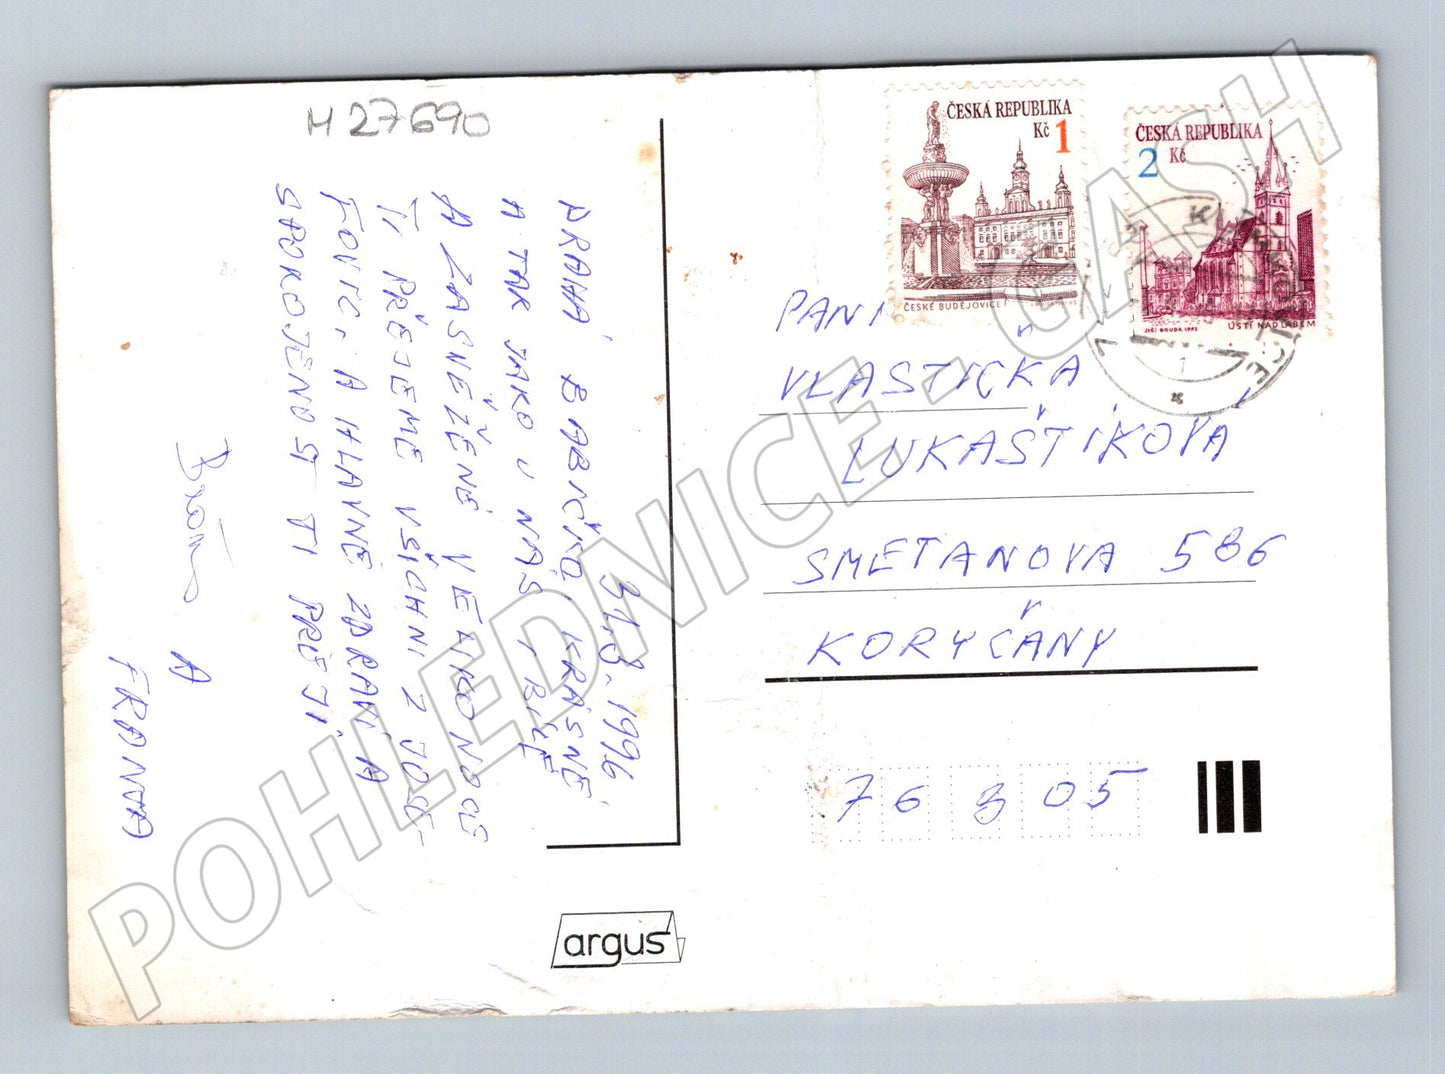 H 27690
31.3.1996
DRAHÁ BABIČKO, KRÁSNÉ
A TAK JAKO U NÁS I BÍLÉ
A ZASNĚŽENÉ VELIKONOCE
TI PŘEJEME VŠICHNI Z JOSE-
FOVIC, A HLAVNĚ ZDRAVÍ A
SPOKOJENOST TI PŘEJÍ
A
FRANTA
ČESKÁ REPUBLIKA
Kč 1
ČESKÉ BUDĚJOVICE
ČESKÁ REPUBLIKA
2 Kč
JIŘÍ BOUDA 1993
ÚSTÍ NAD LABEM
PANÍ
VLASTIČKA
LUKAŠTÍKOVÁ
SMETANOVA 586
KORYČANY
76805
argus
POHLEDNICE - GASH